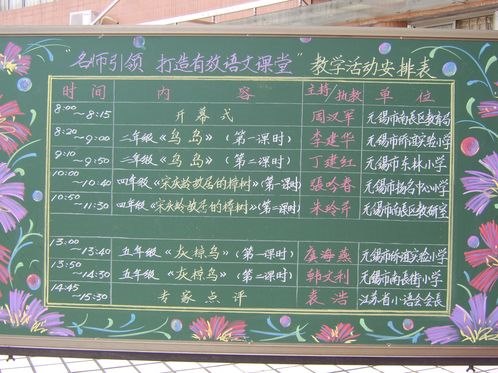 “名师引领 打造有效语文课堂”教学活动安排表
时间 内容 主持/执教 单位
8:00~8:15 开幕式 周汉军 无锡市南长区教育局
8:20~9:00 二年级《鸟岛》(第一课时) 李建华 无锡市侨谊实验小学
9:10~9:50 二年级《鸟岛》(第二课时) 丁建红 无锡市东林小学
10:00~10:40 四年级《宋庆龄故居的樟树》(第一课时) 張吟春 无锡市扬名中心小学
10:50~11:30 四年级《宋庆龄故居的樟树》(第二课时) 朱玲芹 无锡市南長区教研室
13:00~13:40 五年级《灰椋鸟》(第一课时) 盧海燕 无锡市侨谊实验小学
13:50~14:30 五年级《灰椋鸟》(第二课时) 韩文利 无锡市南長街小学
14:45~15:30 专家点评 袁浩 江苏省小语会会长